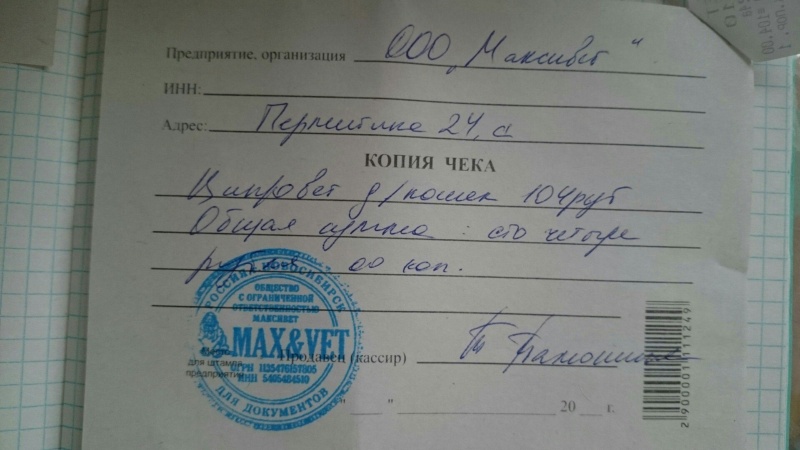 Предприятие, организация ООО „Максивет"
ИНН:
Адрес: Пермитина 24, а
КОПИЯ ЧЕКА
Ципровет д/кошек 104руб
Общая сумма : сто четыре
рубля 00 коп.
РОССИЯ НОВОСИБИРСК
ОБЩЕСТВО
С ОГРАНИЧЕННОЙ
ОТВЕТСТВЕННОСТЬЮ
МАКСИВЕТ
MAX&VET
ОГРН 1135476157805
ИНН 5405484510
ДЛЯ ДОКУМЕНТОВ
для штампа
предприятия
Продавец (кассир)
" ___ " ______ 20 __ г.
2900001111249